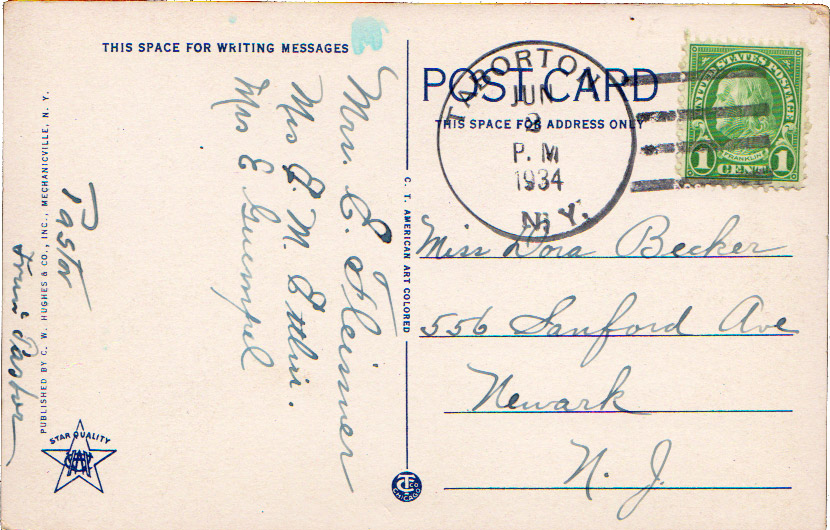 THIS SPACE FOR WRITING MESSAGES
Mrs. E. Fleimer
Mrs E. M.
Mrs E Guempel
Pastor
Pastor
PUBLISHED BY C. W. HUGHES & CO., INC., MECHANICVILLE, N. Y.
STAR QUALITY
C. T. AMERICAN ART COLORED
CHICAGO
POST CARD
THIS SPACE FOR ADDRESS ONLY
TABORTON
JUN
P. M
1934
N. Y.
UNITED STATES POSTAGE
FRANKLIN
1 CENT 1
Miss Dora Becker
556 Sanford Ave
Newark
N. J.